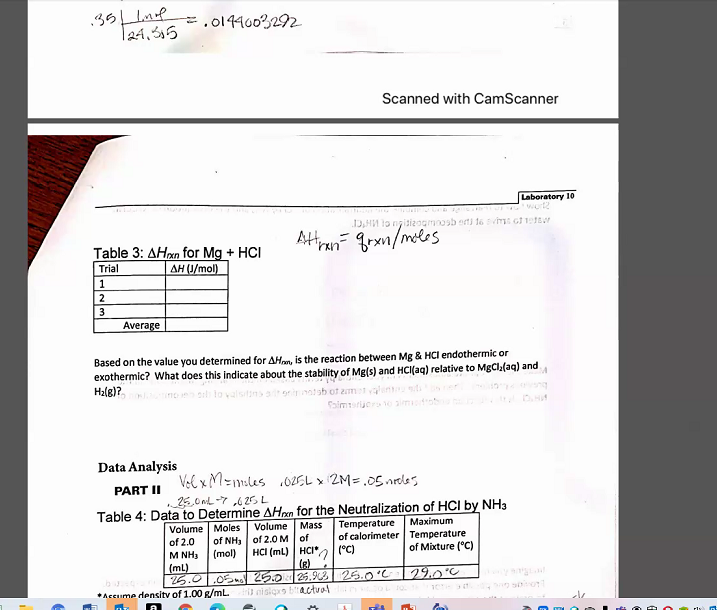 .35 | 1 mol
| 24.305 = .0144003292
Scanned with CamScanner
Laboratory 10
ΔHrxn = qrxn/moles
Table 3: ΔHrxn for Mg + HCl
Trial ΔH (J/mol)
1
2
3
Average
Based on the value you determined for ΔHrxn, is the reaction between Mg & HCl endothermic or
exothermic? What does this indicate about the stability of Mg(s) and HCl(aq) relative to MgCl₂(aq) and
H₂(g)?
Data Analysis
Vol x M = moles .025L x 2M = .05 moles
PART II
25.0 mL → .025 L
Table 4: Data to Determine ΔHrxn for the Neutralization of HCl by NH₃
Volume of 2.0 M NH₃ (mL) Moles of NH₃ (mol) Volume of 2.0 M HCl (mL) Mass of HCl* (g) Temperature of calorimeter (°C) Maximum Temperature of Mixture (°C)
25.0 .05 mol 25.0 25.963 25.0 °C 29.0 °C
*Assume density of 1.00 g/mL actual